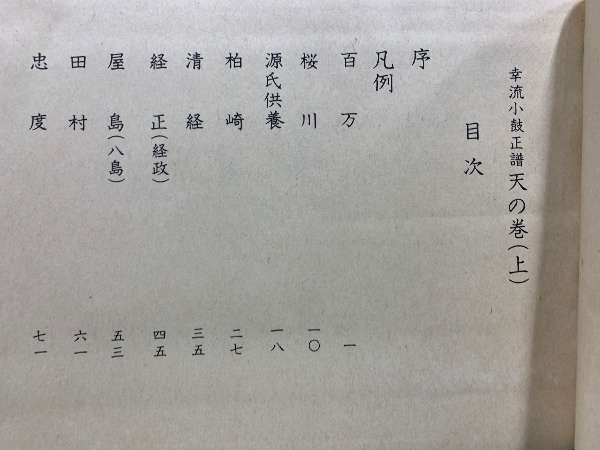 幸流小鼓正譜 天の巻(上)
目次
序
凡例
百万 一
桜川 一〇
源氏供養 一八
柏崎 二七
清経 三五
経正(経政) 四五
屋島(八島) 五三
田村 六一
忠度 七一